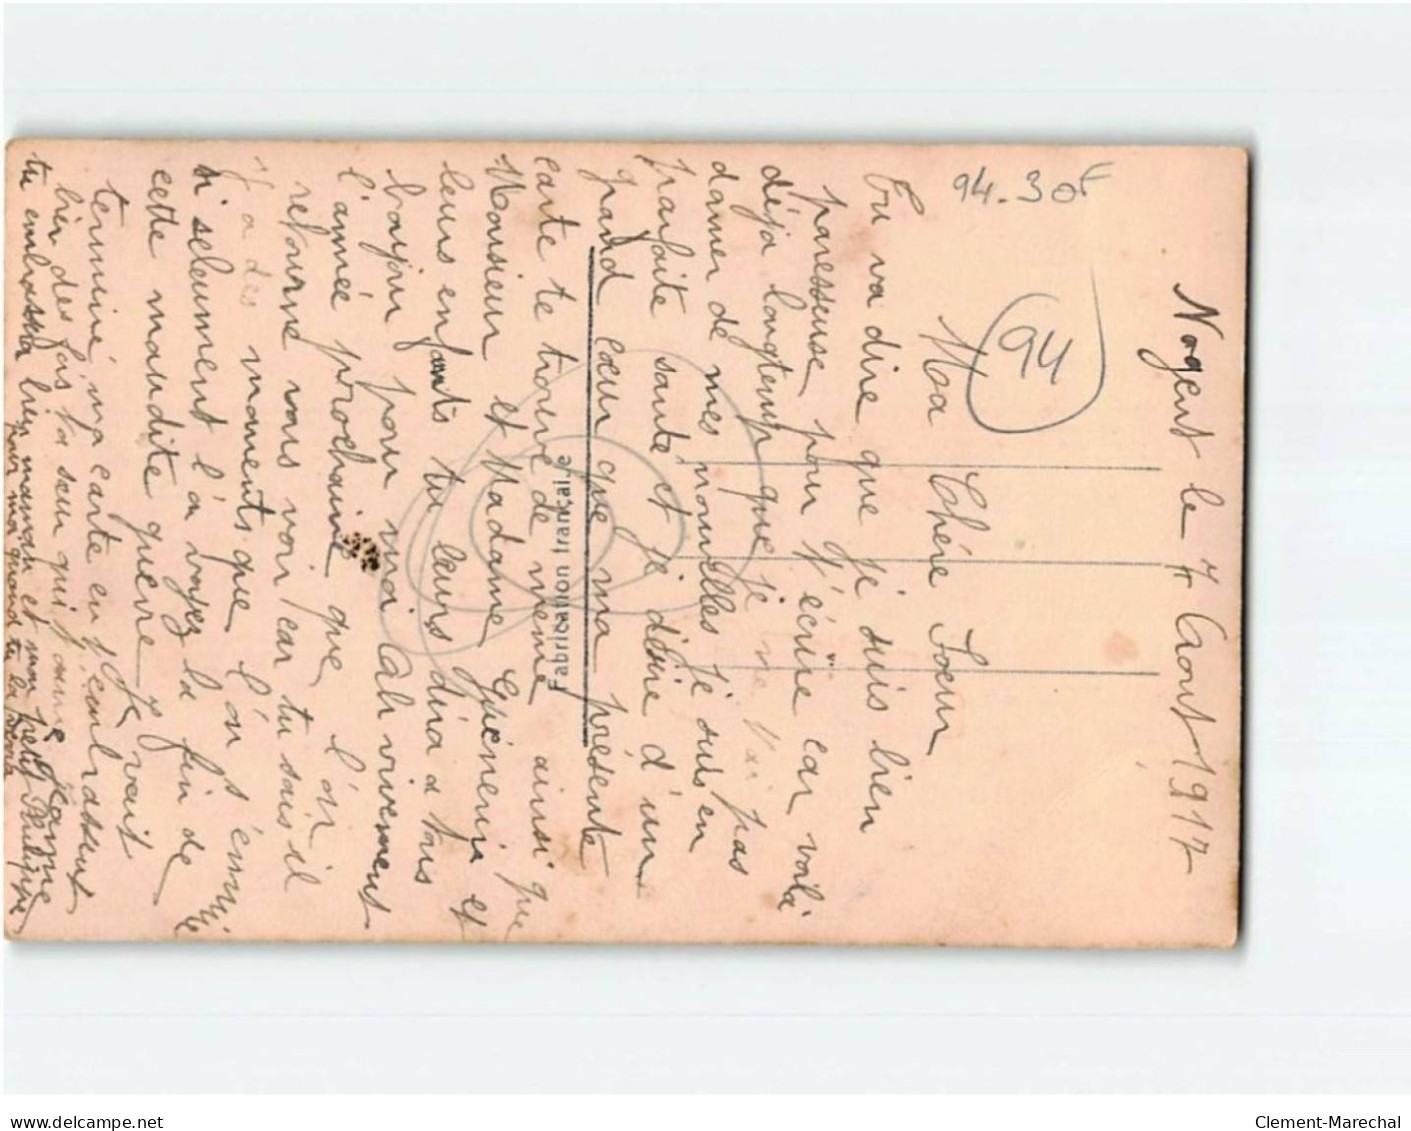 Nogent le 7 Aout 1917
94.30F
94
Ma Chére Soeur
Tu va dire que je suis bien
paresseuse pour t'écrire car voilà
déja longtemp que je ne t'ai pas
donner de mes nouvelles je suis en
parfaite santé et je désire d'un
grand coeur que ma présente
carte te trouve de meme ainsi que
Monsieur et Madame et
leurs enfants tu leurs dira a tous
bonjour pour moi Ah vivement
l'année prochaine que l'on
retourne vous voir car tu sais il
y a des moments que l'on s'ennuie
si seleument l'on voyez la fin de
cette maudite guerre Je vait
terminé ma carte en t'embrassent
bien des fois ta seur qui t'aime Jeanne
tu embrassera bien maman et mon petit Philippe
pour moi quand tu la
Fabrication française
delcampe.net
Clement-Marechal